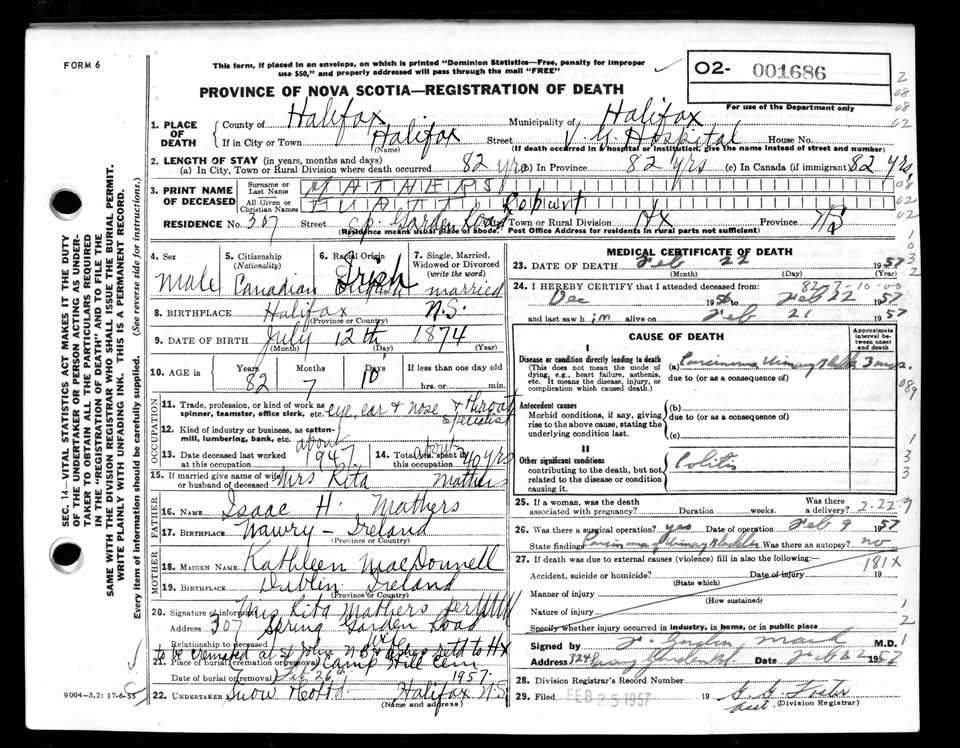 FORM 6
This form, if placed in an envelope, on which is printed "Dominion Statistics—Free, penalty for improper
use $50," and properly addressed will pass through the mail "FREE"
02- 001686
For use of the Department only
PROVINCE OF NOVA SCOTIA—REGISTRATION OF DEATH
1. PLACE OF DEATH County of Halifax Municipality of Halifax
If in City or Town Halifax Street V. G. Hospital House No.
(Name) (If death occurred in a hospital or institution, give the name instead of street and number)
2. LENGTH OF STAY (in years, months and days)
(a) In City, Town or Rural Division where death occurred 82 yrs (b) In Province 82 yrs (c) In Canada (if immigrant) 82 yrs.
3. PRINT NAME OF DECEASED Surname or Last Name MATHERS
All Given or Christian Names
RESIDENCE No. 307 Street Sp. Garden Road City, Town or Rural Division Hx Province NS
(Residence means usual place of abode. Post Office Address for residents in rural parts not sufficient)
4. Sex
Male
5. Citizenship (Nationality)
Canadian
6. Racial Origin
Irish
7. Single, Married, Widowed or Divorced (write the word)
married
8. BIRTHPLACE Halifax N.S.
(Province or Country)
9. DATE OF BIRTH July 12th 1874
(Month) (Day) (Year)
10. AGE in Years Months Days If less than one day old
82 7 10 hrs. or min.
OCCUPATION
11. Trade, profession, or kind of work as
spinner, teamster, office clerk, etc. eye, ear & nose & throat
specialist
12. Kind of industry or business, as cotton-
mill, lumbering, bank, etc.
13. Date deceased last worked at this occupation about 1947
14. Total years spent in this occupation 40 yrs
15. If married give name of wife
or husband of deceased Mrs Rita Mathers
FATHER
16. NAME Isaac H. Mathers
17. BIRTHPLACE Nawry - Ireland
(Province or Country)
MOTHER
18. MAIDEN NAME Kathleen MacDonnell
19. BIRTHPLACE Dublin Ireland
(Province or Country)
20. Signature of informant Mrs Rita Mathers per
Address 307 Spring Garden Road
Relationship to deceased wife
to be cremated at St John N.B. & ashes retd to Hx
21. Place of burial (cremation or removal) Camp Hill Cem
Date of burial (or removal) Feb 26 1957.
22. UNDERTAKER Snow & Co Ltd. Halifax N.S.
(Name and address)
MEDICAL CERTIFICATE OF DEATH
23. DATE OF DEATH Feb 22 1957
(Month) (Day) (Year)
24. I HEREBY CERTIFY that I attended deceased from:
Dec 1956 to Feb 22 1957
and last saw him alive on Feb 21 1957
CAUSE OF DEATH
Approximate interval between onset and death
I
Disease or condition directly leading to death
(This does not mean the mode of dying, e.g., heart failure, asthenia, etc. It means the disease, injury, or complication which caused death.)
(a) Carcinoma Urinary Bladder 3 mos.
due to (or as a consequence of)
089
Antecedent causes
Morbid conditions, if any, giving rise to the above cause, stating the underlying condition last.
(b)
due to (or as a consequence of)
(c)
II
Other significant conditions
contributing to the death, but not related to the disease or condition causing it.
Colitis
25. If a woman, was the death associated with pregnancy? Duration weeks. Was there a delivery? 2-22-7
26. Was there a surgical operation? yes Date of operation Feb 9 1957
State findings Carcinoma of Urinary Bladder Was there an autopsy? no
27. If death was due to external causes (violence) fill in also the following:
181X
Accident, suicide or homicide? Date of injury 19
(State which)
Manner of injury
(How sustained)
Nature of injury
Specify whether injury occurred in industry, in home, or in public place
Signed by F. Gordon Mack M.D.
Address Spring Garden Rd Date Feb 22 1957
28. Division Registrar's Record Number
29. Filed FEB 25 1957 19 G. G. Foster
Asst. (Division Registrar)
9004—3.2: 17-6-55
SEC. 14—VITAL STATISTICS ACT MAKES IT THE DUTY
OF THE UNDERTAKER OR PERSON ACTING AS UNDER-
TAKER TO OBTAIN ALL THE PARTICULARS REQUIRED
IN THE "REGISTRATION OF DEATH" AND TO FILE THE
SAME WITH THE DIVISION REGISTRAR WHO SHALL ISSUE THE BURIAL PERMIT.
WRITE PLAINLY WITH UNFADING INK. THIS IS A PERMANENT RECORD.
Every item of information should be carefully supplied. (See reverse side for instructions.)